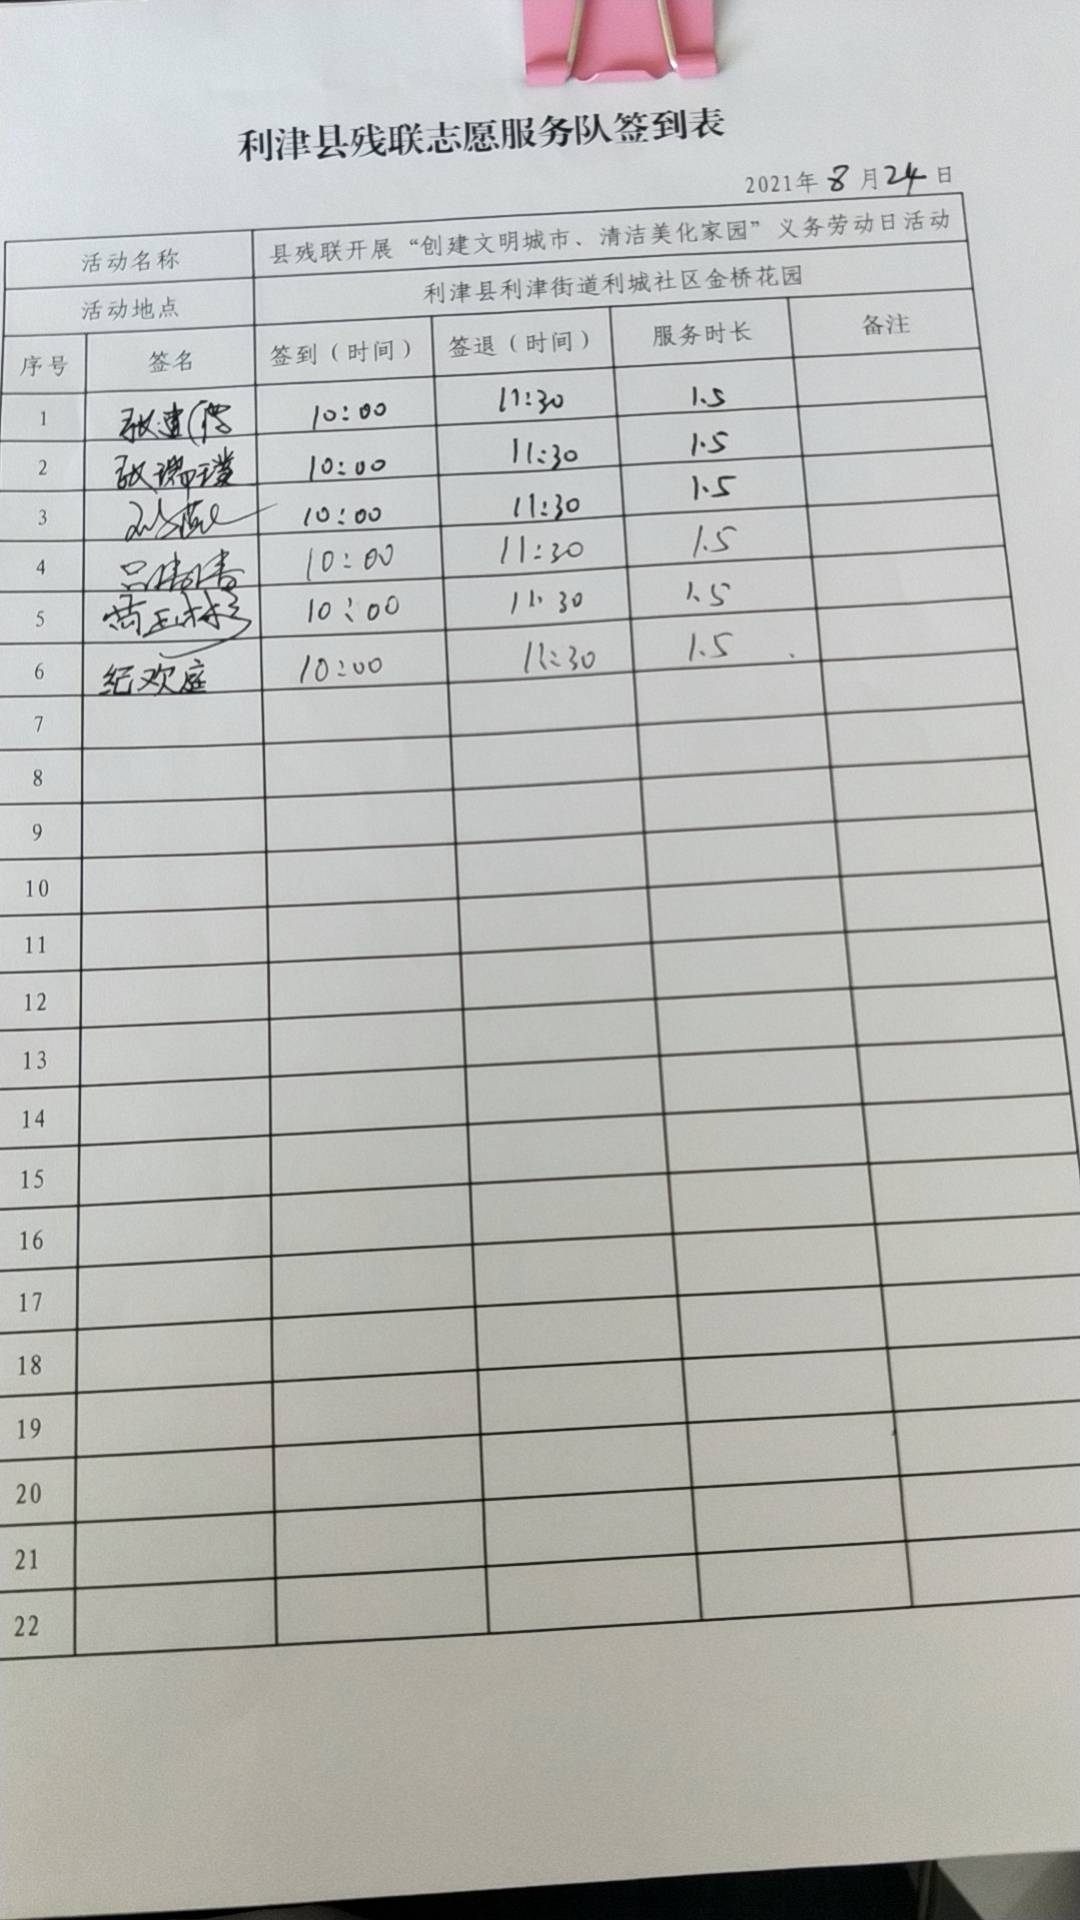 利津县残联志愿服务队签到表
2021年 8 月 24 日
活动名称 县残联开展“创建文明城市、清洁美化家园”义务劳动日活动
活动地点 利津县利津街道利城社区金桥花园
序号 签名 签到（时间） 签退（时间） 服务时长 备注
1 10:00 11:30 1.5
2 10:00 11:30 1.5
3 10:00 11:30 1.5
4 吕倩倩 10:00 11:30 1.5
5 10:00 11:30 1.5
6 纪欢庭 10:00 11:30 1.5
7
8
9
10
11
12
13
14
15
16
17
18
19
20
21
22